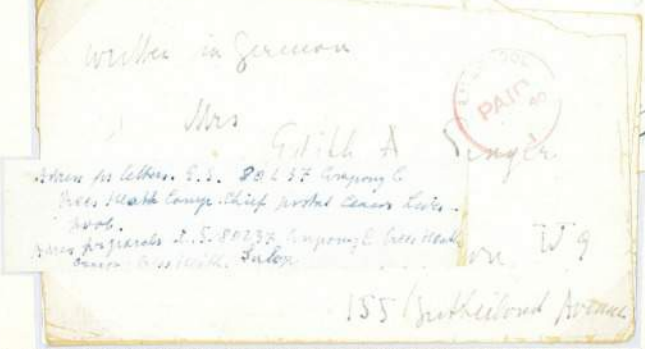 written in German
Mrs
Edith A Singer
PAID
Adress for letters. E.S. 80237 Company C
Prees Heath Camp Chief postal Censor Liver-
pool.
Adress for parcels E.S. 80237 Company C Prees Heath
Prees Heath. Salop
W 9
155 Sutherland Avenue